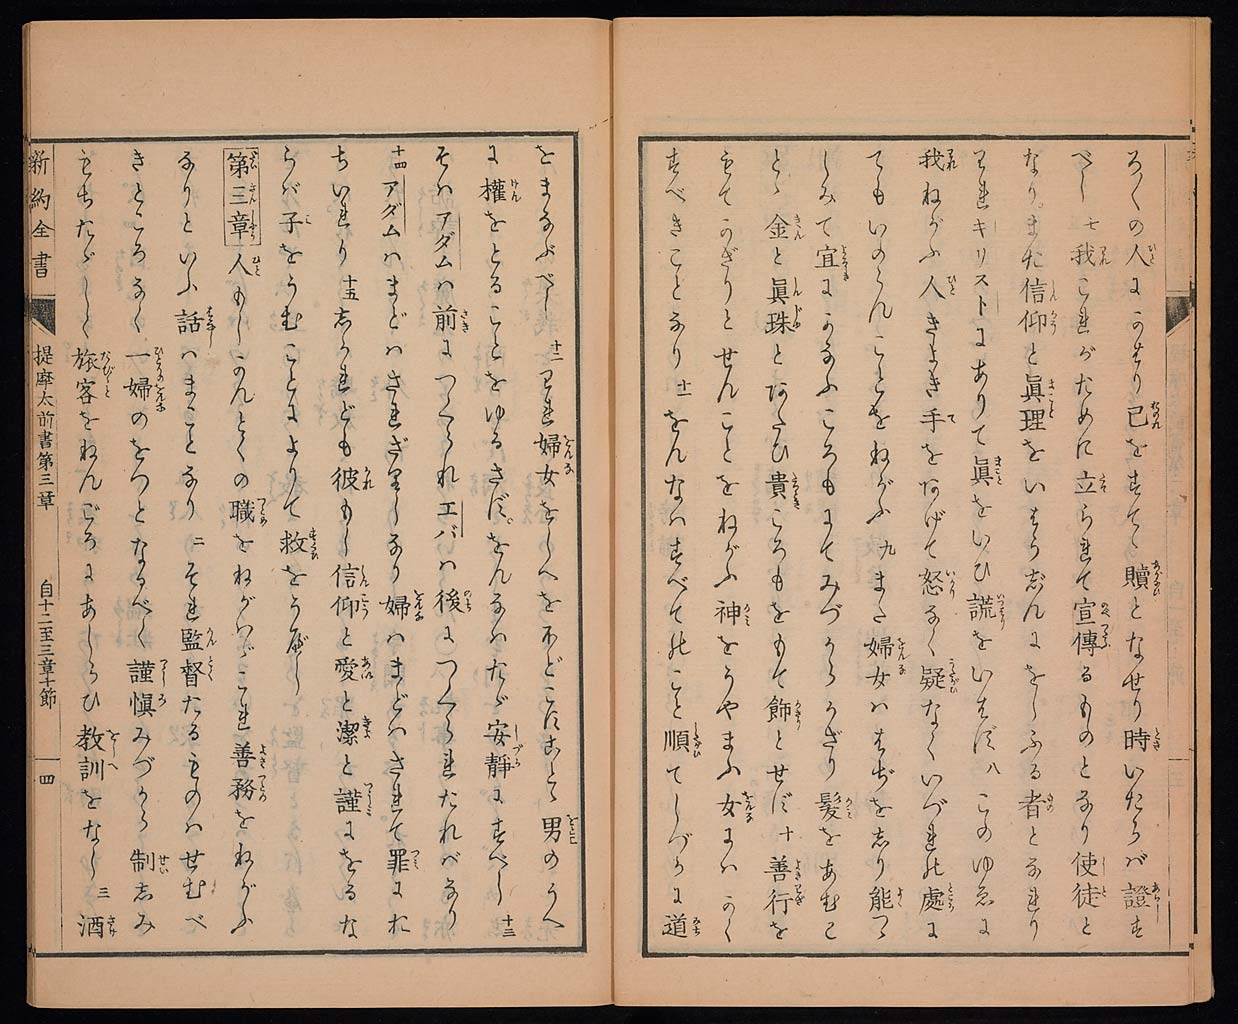 ろくの人にかはり己をすてゝ贖となせり時いたらバ證す
べし七我これがために立られて宣傳るものとなり使徒と
なり。また信仰と眞理をいはうじんにをしふる者となれり
われキリストにありて眞をいひ謊をいはず八このゆゑに
我ねがふ人きよき手をあげて怒なく疑なくいづれの處に
てもいのらんことをねがふ九また婦女ハはぢをしり能つゝ
しみて宜にかなふころもにてみづからかざり髪をあむこ
とゝ金と眞珠とあたひ貴ころもをもて飾とせず十善行を
もてかざりとせんことをねがふ神をうやまふ女にハかく
すべきことなり十一をんなハすべてのこと順てしづかに道
をまなぶべし十二われ婦女をしへを不どこすことゝ男のうへ
に權をとることをゆるさず。をんなハたゞ安靜にすべし十三
そハアダムハ前につくられエバハ後につくられたれバなり
十四アダムハまどハされざりしなり婦ハまどハされて罪にお
ちいれり十五しかれども彼もし信仰と愛と潔と謹にをるな
らバ子をうむことによりて救をうべし
第三章人もしかんとくの職をねがハゞこれ善務をねがふ
なりといふ話ハまことなり二それ監督たるものハせむべ
きところなく一婦のをつとなるべく謹慎みづから制しみ
もちたゞしく旅客をねんごろにあしらひ教訓をなし三酒
新約全書
提摩太前書第三章
自十二至三章十節
四